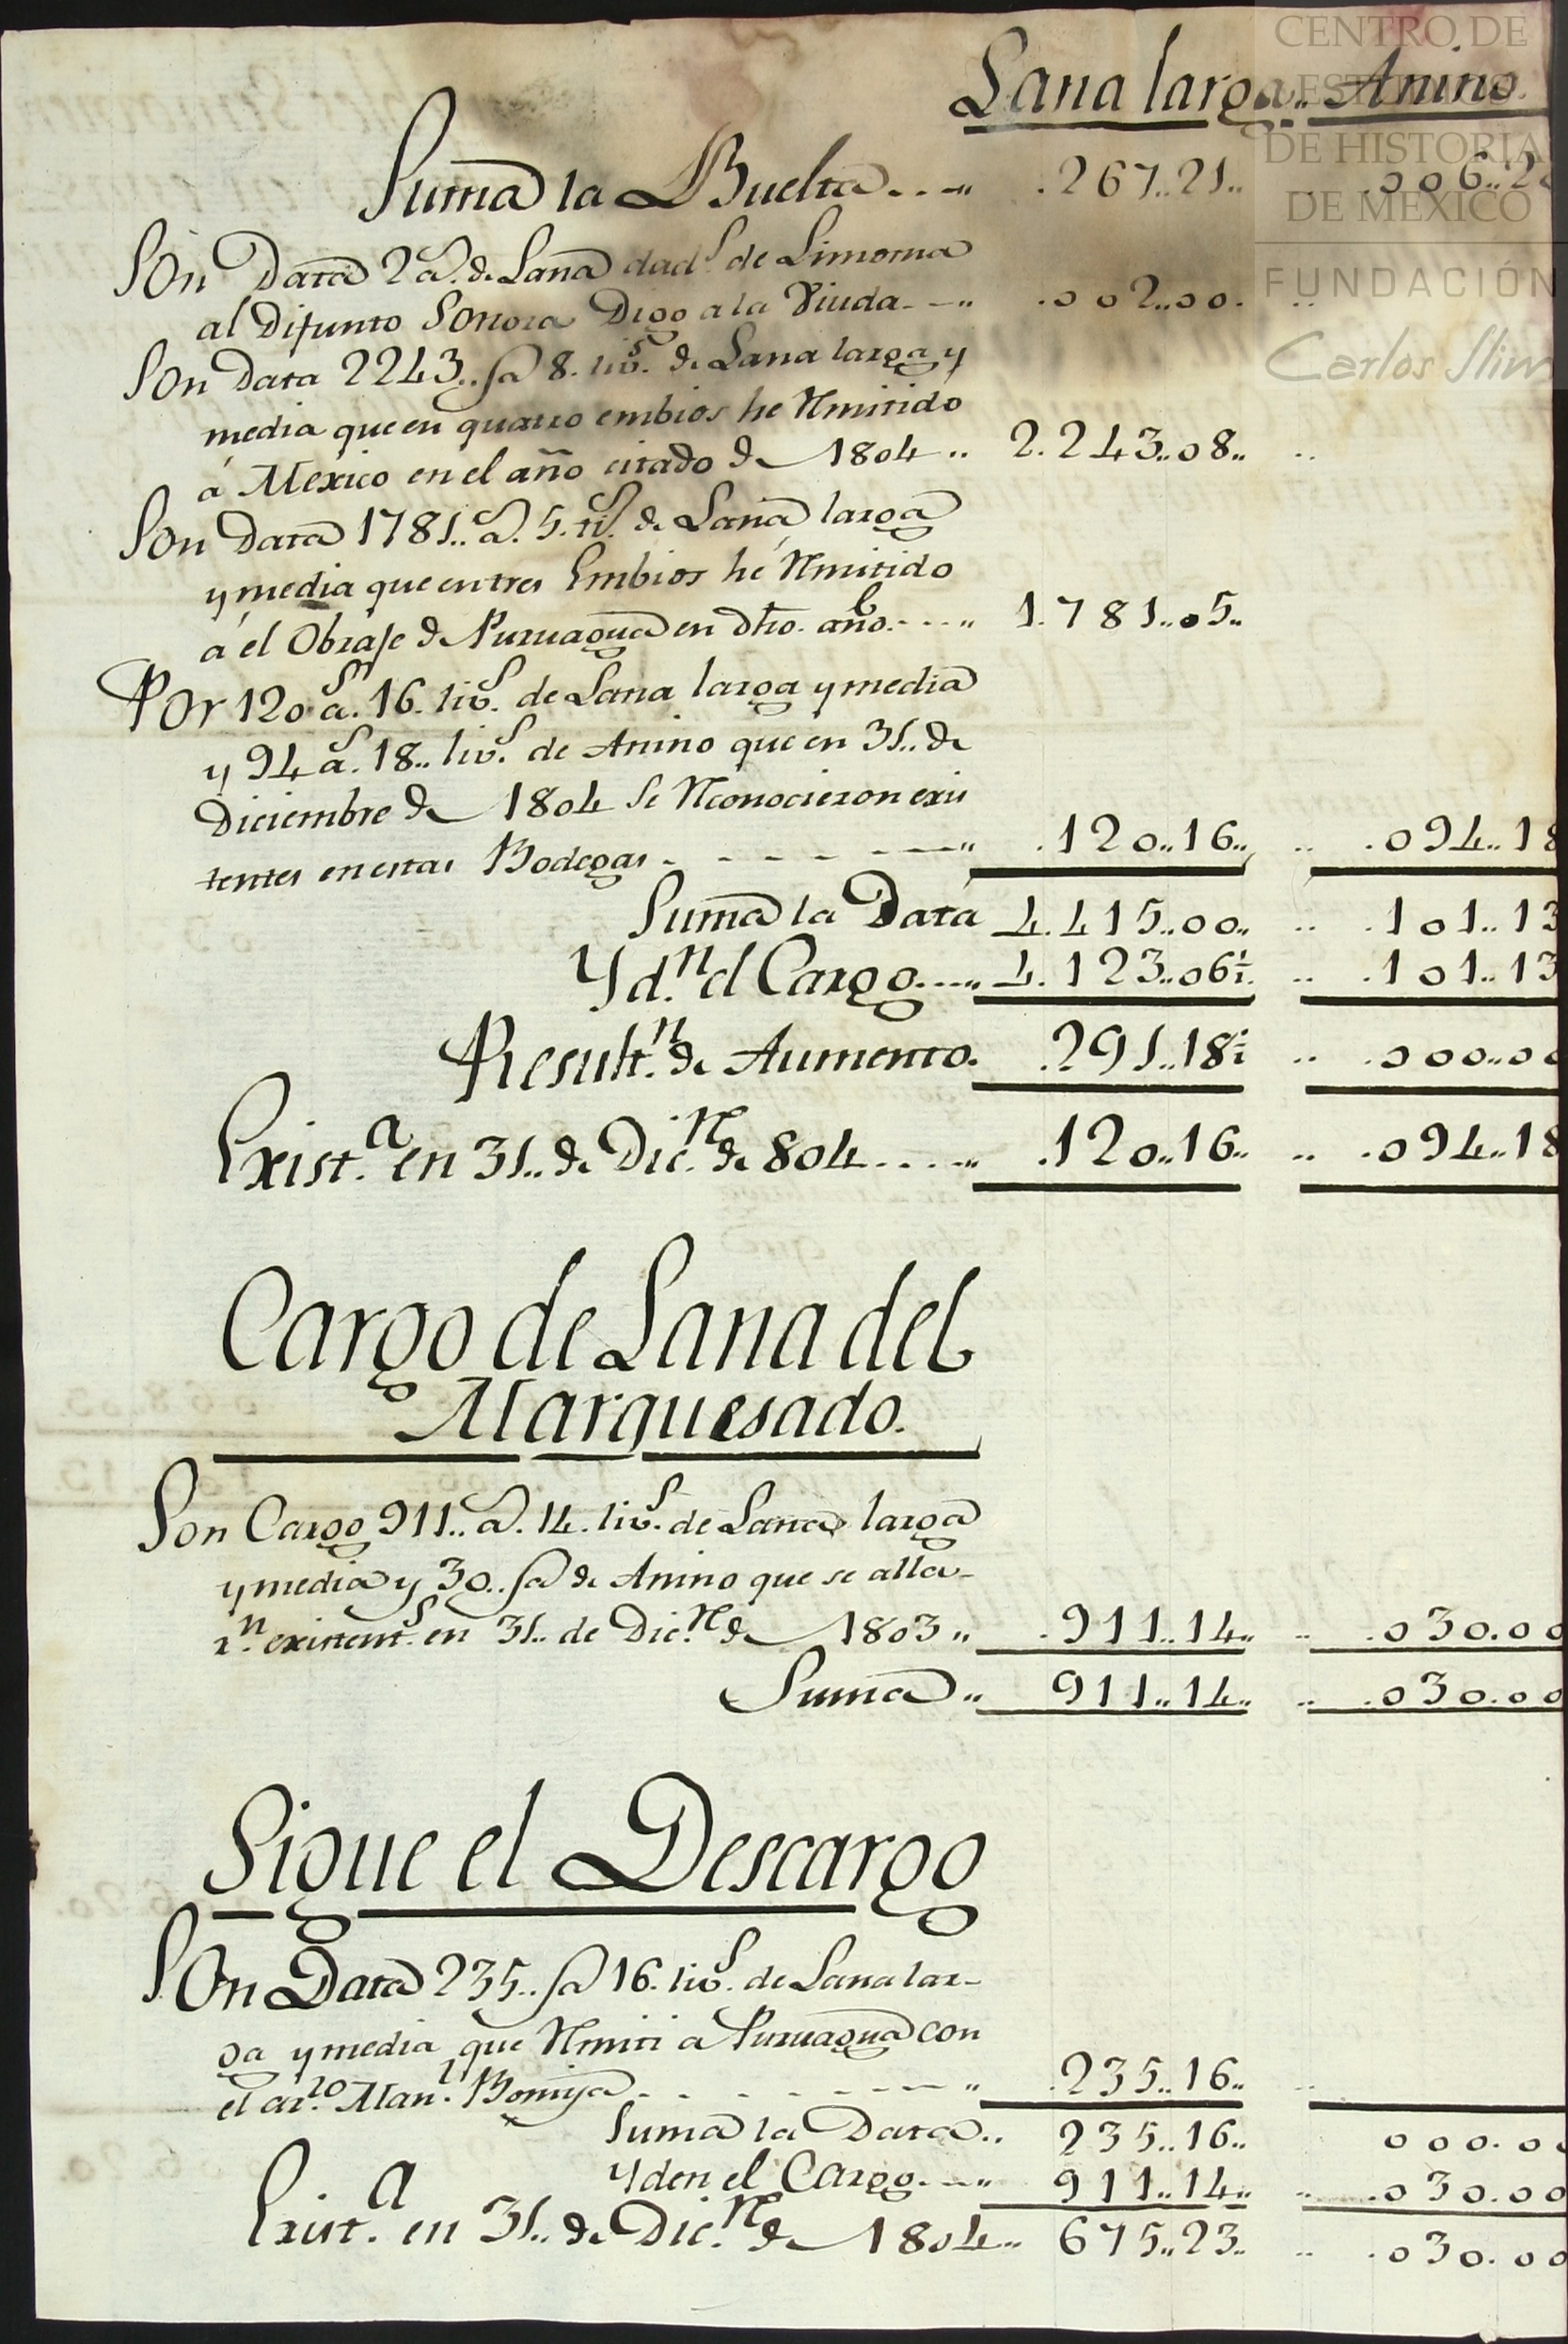 Lana larga.. Anino
Suma la Buelta...." .267..21.. .006..2
Son Data 2 @.s de Lana dad.s de Limorna
al Difunto Sonora Digo a la Viuda---" .002..00. ..
Son Data 2243..@ 8. lib.s de Lana larga y
media que en quatro embios he Rmitido
á Mexico en el año citado de 1804 .. 2.243..08.. ..
Son Data 1781.. @.s 5. lib.s de Lana larga
y media que en tres Embios hé Rmitido
á el Obraje de Puruagua en dho. año....." 1.781..05..
Por 120 @.s 16. lib.s de Lana larga y media
y 94 @.s 18.. lib.s de Anino que en 31.. de
Diciembre de 1804 se Rconocieron exis
tentes en estas Bodegas - - - - - --" .120..16.. .. .094..18
Suma la Data 4.415..00.. .. .101..13
Yd.n el Cargo....." 4.123..06½. .. .101..13
Result.n de Aumento. .291..18½ .. .000..00
Exist.a en 31.. de Dic.re de 804......" .120..16.. .. .094..18
Cargo de Lana del
Marquesado.
Son Cargo 911.. @.s 14. lib.s de Lana larga
y media y 30.. @ de Anino que se alla-
r.n existent.s en 31.. de Dic.re de 1803 " .911..14.. .. .030.00
Suma " 911..14.. .. .030.00
Sigue el Descargo
Son Data 235.. @ 16. lib.s de Lana lar-
ga y media que Rmiti a Puruagua con
el ar.ro Man.l Bomija - - - - - ---" .235..16.. ..
Suma la Data.. 235..16.. 000.0
Yden el Cargo....." 911..14.. .. .030.00
Exist.a en 31.. de Dic.re de 1804.." 675..23.. .. .030.00
CENTRO DE
ESTUDIOS
DE HISTORIA
DE MEXICO
FUNDACIÓN
Carlos Slim